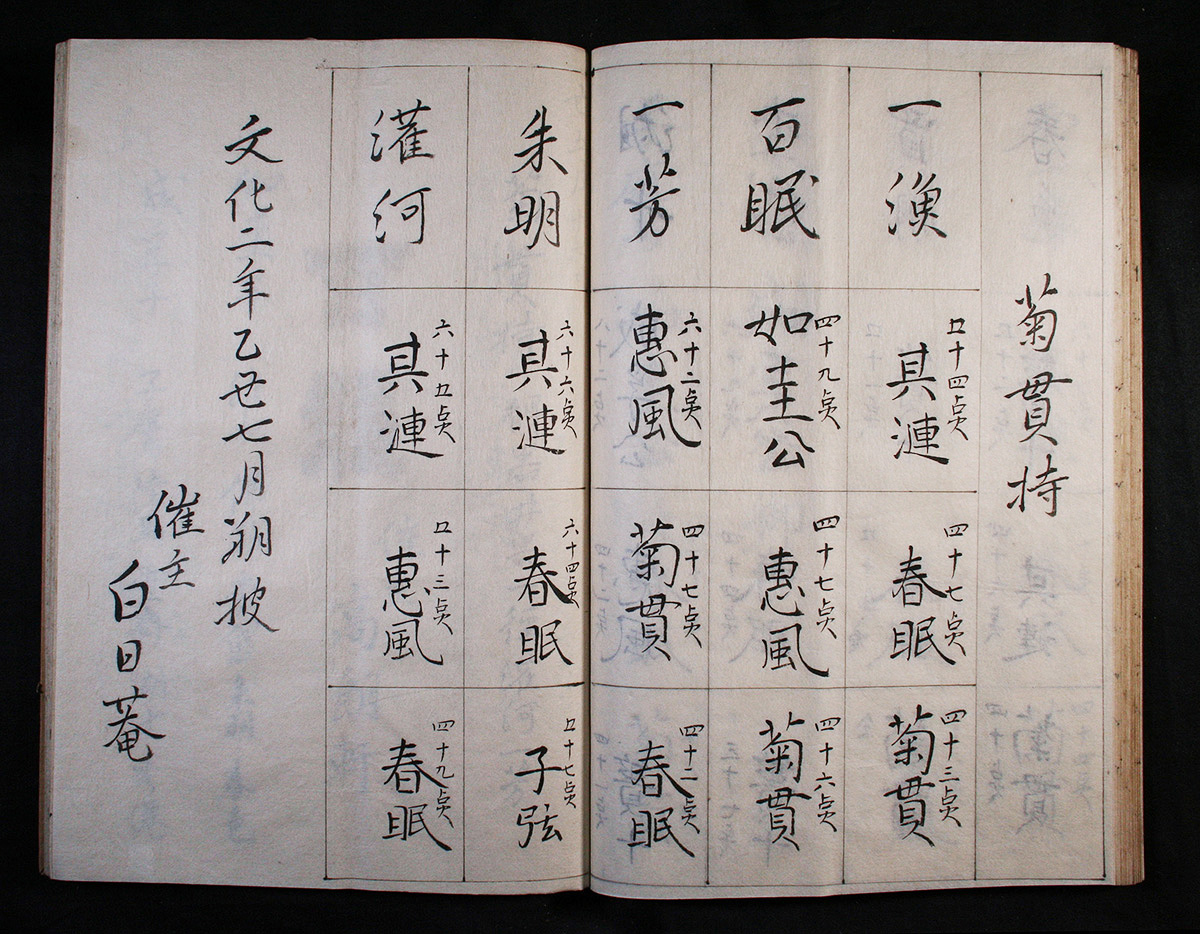 菊貫持
一漁
五十四点
其漣
四十七点
春眠
四十三点
菊貫
百眠
四十九点
如圭公
四十七点
惠風
四十六点
菊貫
一芳
六十二点
惠風
四十七点
菊貫
四十二点
春眠
朱明
六十六点
其漣
六十四点
春眠
五十七点
子弦
灌河
六十五点
其漣
五十三点
惠風
四十九点
春眠
文化二年乙丑七月朔披
催主
白日菴